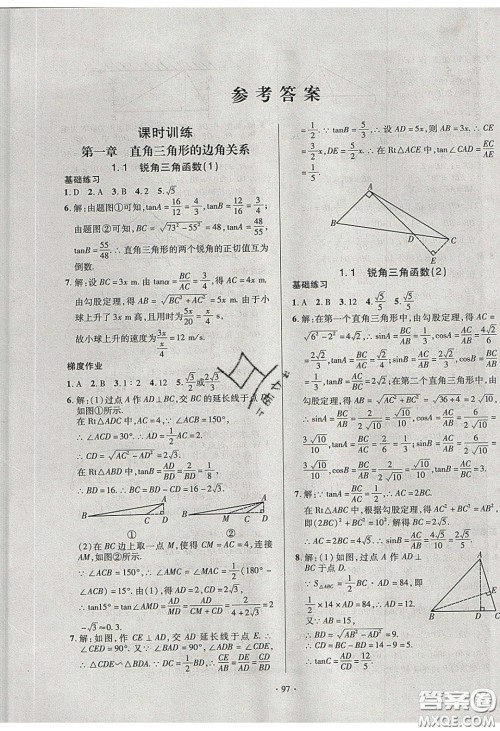 参考答案
课时训练
第一章 直角三角形的边角关系
1.1 锐角三角函数(1)
基础练习
1. D 2. A 3. B 4. 2 5. √5
6. 解:由题图①可知,tanA=16/12=4/3,tanB=12/16=3/4;
由题图②可知,BC=√(73²-55²)=48,∴tanA=48/55,
tanB=55/48.∴直角三角形的两个锐角的正切值互为
倒数.
7. 解:设BC=3x m.由tanA=BC/AC=3/4,得AC=4x m.
由勾股定理,得AB=√(BC²+AC²)=5x m.由于小
球上升了3x m高,且用时为5x/20=x/4 s,
故小球上升的速度为3x÷x/4=12 m/s.
梯度作业
1. A 2. B 3. 1∶2 4. 12 5. √3/2或2√3/3
6. 解:(1)过点A作AD⊥BC,交BC的延长线于点D,
如图①所示.
在Rt△ADC中,AC=4,
∵∠C=150°,∴∠ACD=30°.∴AD=1/2AC=2.
∴CD=√(AC²-AD²)=2√3.
在Rt△ABD中,tanB=AD/BD=2/BD=1/8,
∴BD=16.∴BC=BD-CD=16-2√3.
A
B C D B M C D
① ②
(2)在BC边上取一点M,使得CM=AC=4,连接
AM,如图②所示.
∵∠ACB=150°,∴∠AMC=∠MAC=15°.
∴tan15°=tan∠AMD=AD/MD=2/(4+2√3)=2
-√3≈0.3.
7. 解:如图,作CE⊥AD,交AD延长线于点E.
∵∠CDE=∠BDA,∠CED=∠BAD=90°,
∴△CDE∽△BDA.∴CE/AB=DE/AD=CD/BD=
1/2.∵tanB=AD/AB=5/3,∴设AD=5x,则AB=3x.
∴CE=3/2x,DE=5/2x.∴在Rt△ACE中,tan∠CAD=
CE/AE=1/5.
A
B D C
E
1.1 锐角三角函数(2)
基础练习
1. A 2. B 3. 12 4. √5/5 5. √5
6. 解:在第一个直角三角形中,由勾股定理,得AC=
√(6²-2²)=4√2,∴sinA=BC/AB=1/3,cosA=AC/AB=
2√2/3,tanA=BC/AC=√2/4;sinB=AC/AB=2√2/3,cosB=
BC/AB=1/3,tanB=AC/BC=2√2;在第二个直角三角形中,由
勾股定理,得AB=√(BC²+AC²)=√(36+4)=2√10,
∴sinA=BC/AB=6/(2√10)=3√10/10,cosA=AC/AB=√10/10,
tanA=BC/AC=3;sinB=AC/AB=2/(2√10)=√10/10,cosB=BC/AB=
3√10/10,tanB=AC/BC=1/3.
7. 解:∵tanB=AC/BC=1/2,∴BC=2AC.∵在Rt△ABC
中,AB=10,根据勾股定理,得AC²+BC²=AB²,
∴AC=2√5,BC=4√5.∴cosA=AC/AB=√5/5.
8. 解:(1)如图,过点A作AD⊥
BC于点D.
∵S△ABC=1/2BC·AD=84,
∴1/2×14×AD=84,
∴AD=12.
∴BD=√(AB²-AD²)=9.
∴CD=5.∴tanC=AD/CD=12/5.
A
E
B D C
· 97 ·
答案圈
MXQE.COM